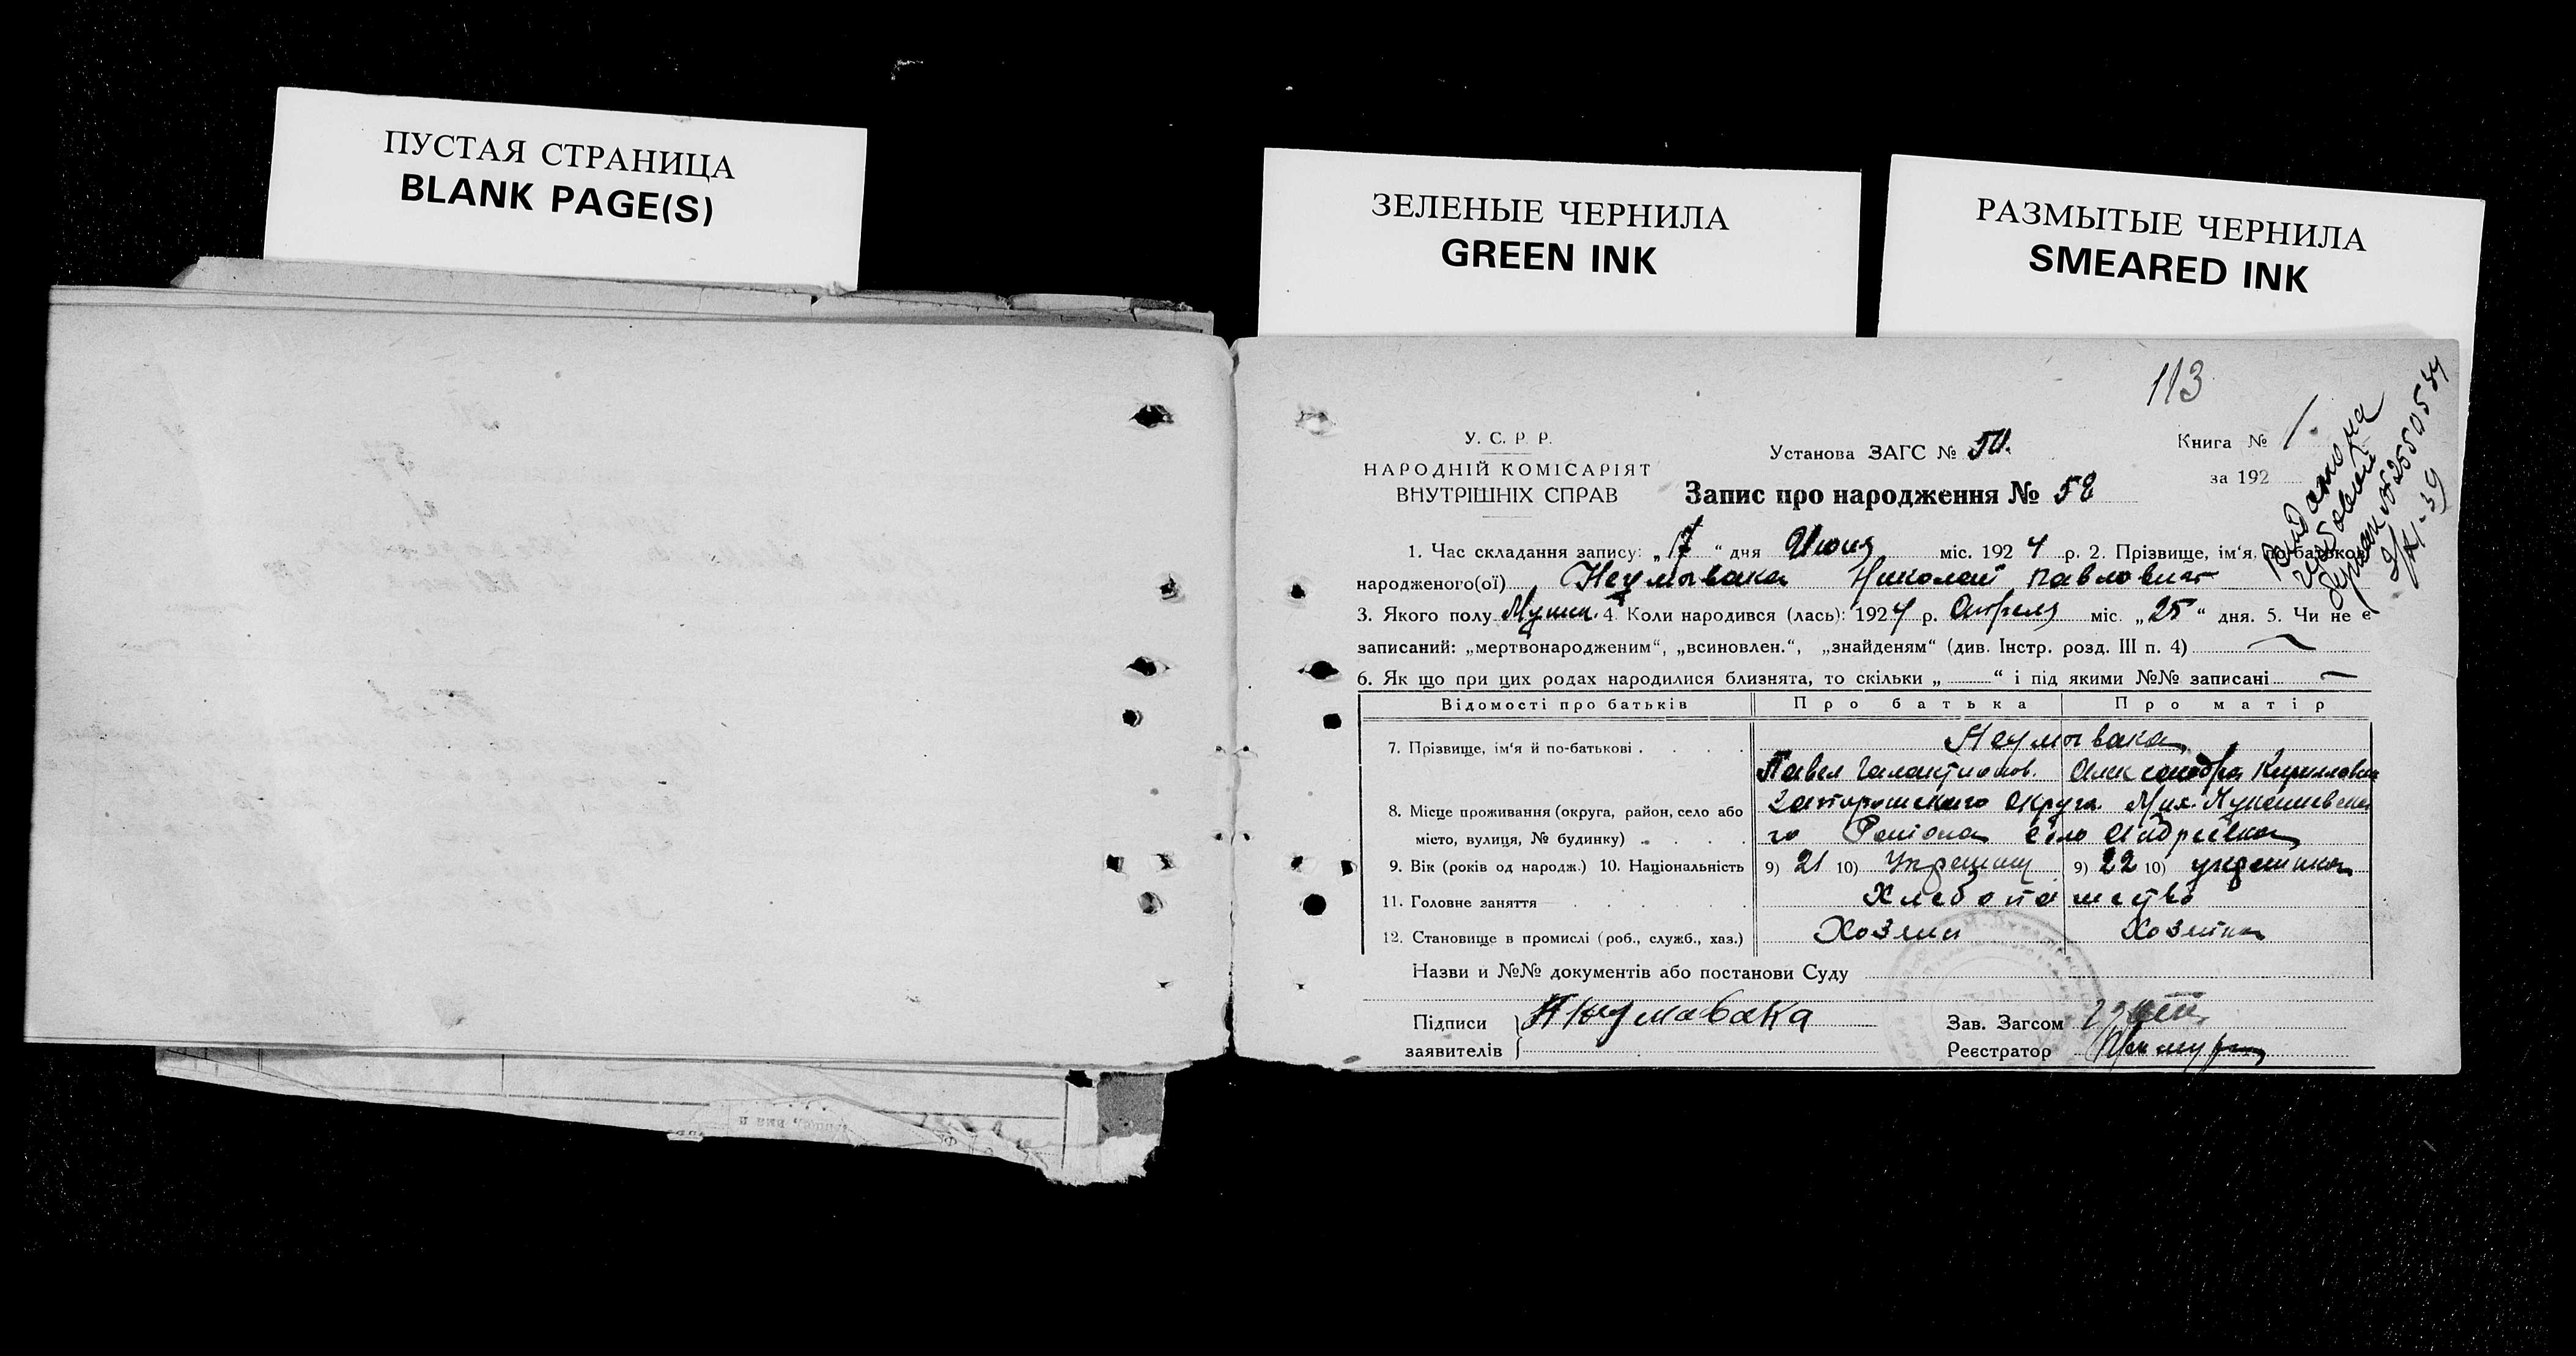 ПУСТАЯ СТРАНИЦА
BLANK PAGE(S)
ЗЕЛЕНЫЕ ЧЕРНИЛА
GREEN INK
РАЗМЫТЫЕ ЧЕРНИЛА
SMEARED INK
113
У. С. Р. Р.
НАРОДНІЙ КОМІСАРІЯТ
ВНУТРІШНІХ СПРАВ
Установа ЗАГС № 50.
Запис про народження № 58
Книга № 1
за 192
1. Час складання запису: „17“ дня Июня міс. 1924 р. 2. Прізвище, ім'я, по-батькові
народженого(ої) Неумывака Николай Павлович
3. Якого полу Мужск. 4. Коли народився (лась): 1924 р. Апреля міс. „25“ дня. 5. Чи не є
записаний: „мертвонародженим“, „всиновлен.“, „знайденям“ (див. Інстр. розд. III п. 4)
6. Як що при цих родах народилися близнята, то скільки „ “ і під якими №№ записані —
Відомості про батьків Про батька Про матір
7. Прізвище, ім'я й по-батькові Неумывака
Павел Галактионов. Александра Кирилловна
8. Місце проживання (округа, район, село або Запорожского Округа Мих. Лукашевско
місто, вулиця, № будинку) го Раиона село Андреевка
9. Вік (років од народж.) 10. Національність 9) 21 10) Украинец 9) 22 10) украинка
11. Головне заняття Хлебопашество
12. Становище в промислі (роб., служб., хаз.) Хозяин Хозяйка
Назви и №№ документів або постанови Суду
Підписи заявителів П Неумавака
Зав. Загсом
Реєстратор